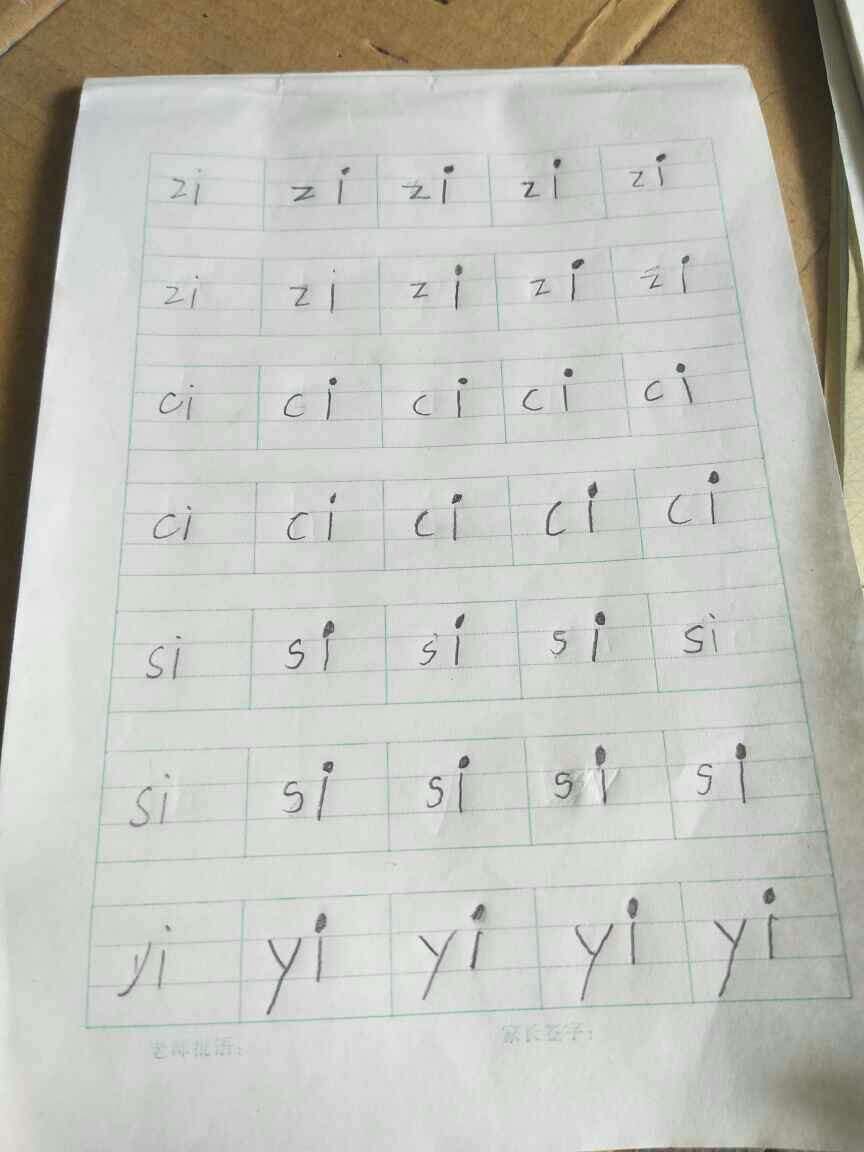 zi zi zi zi zi
zi zi zi zi zi
ci ci ci ci ci
ci ci ci ci ci
si si si si si
si si si si si
yi yi yi yi yi
老师批语： 家长签字：